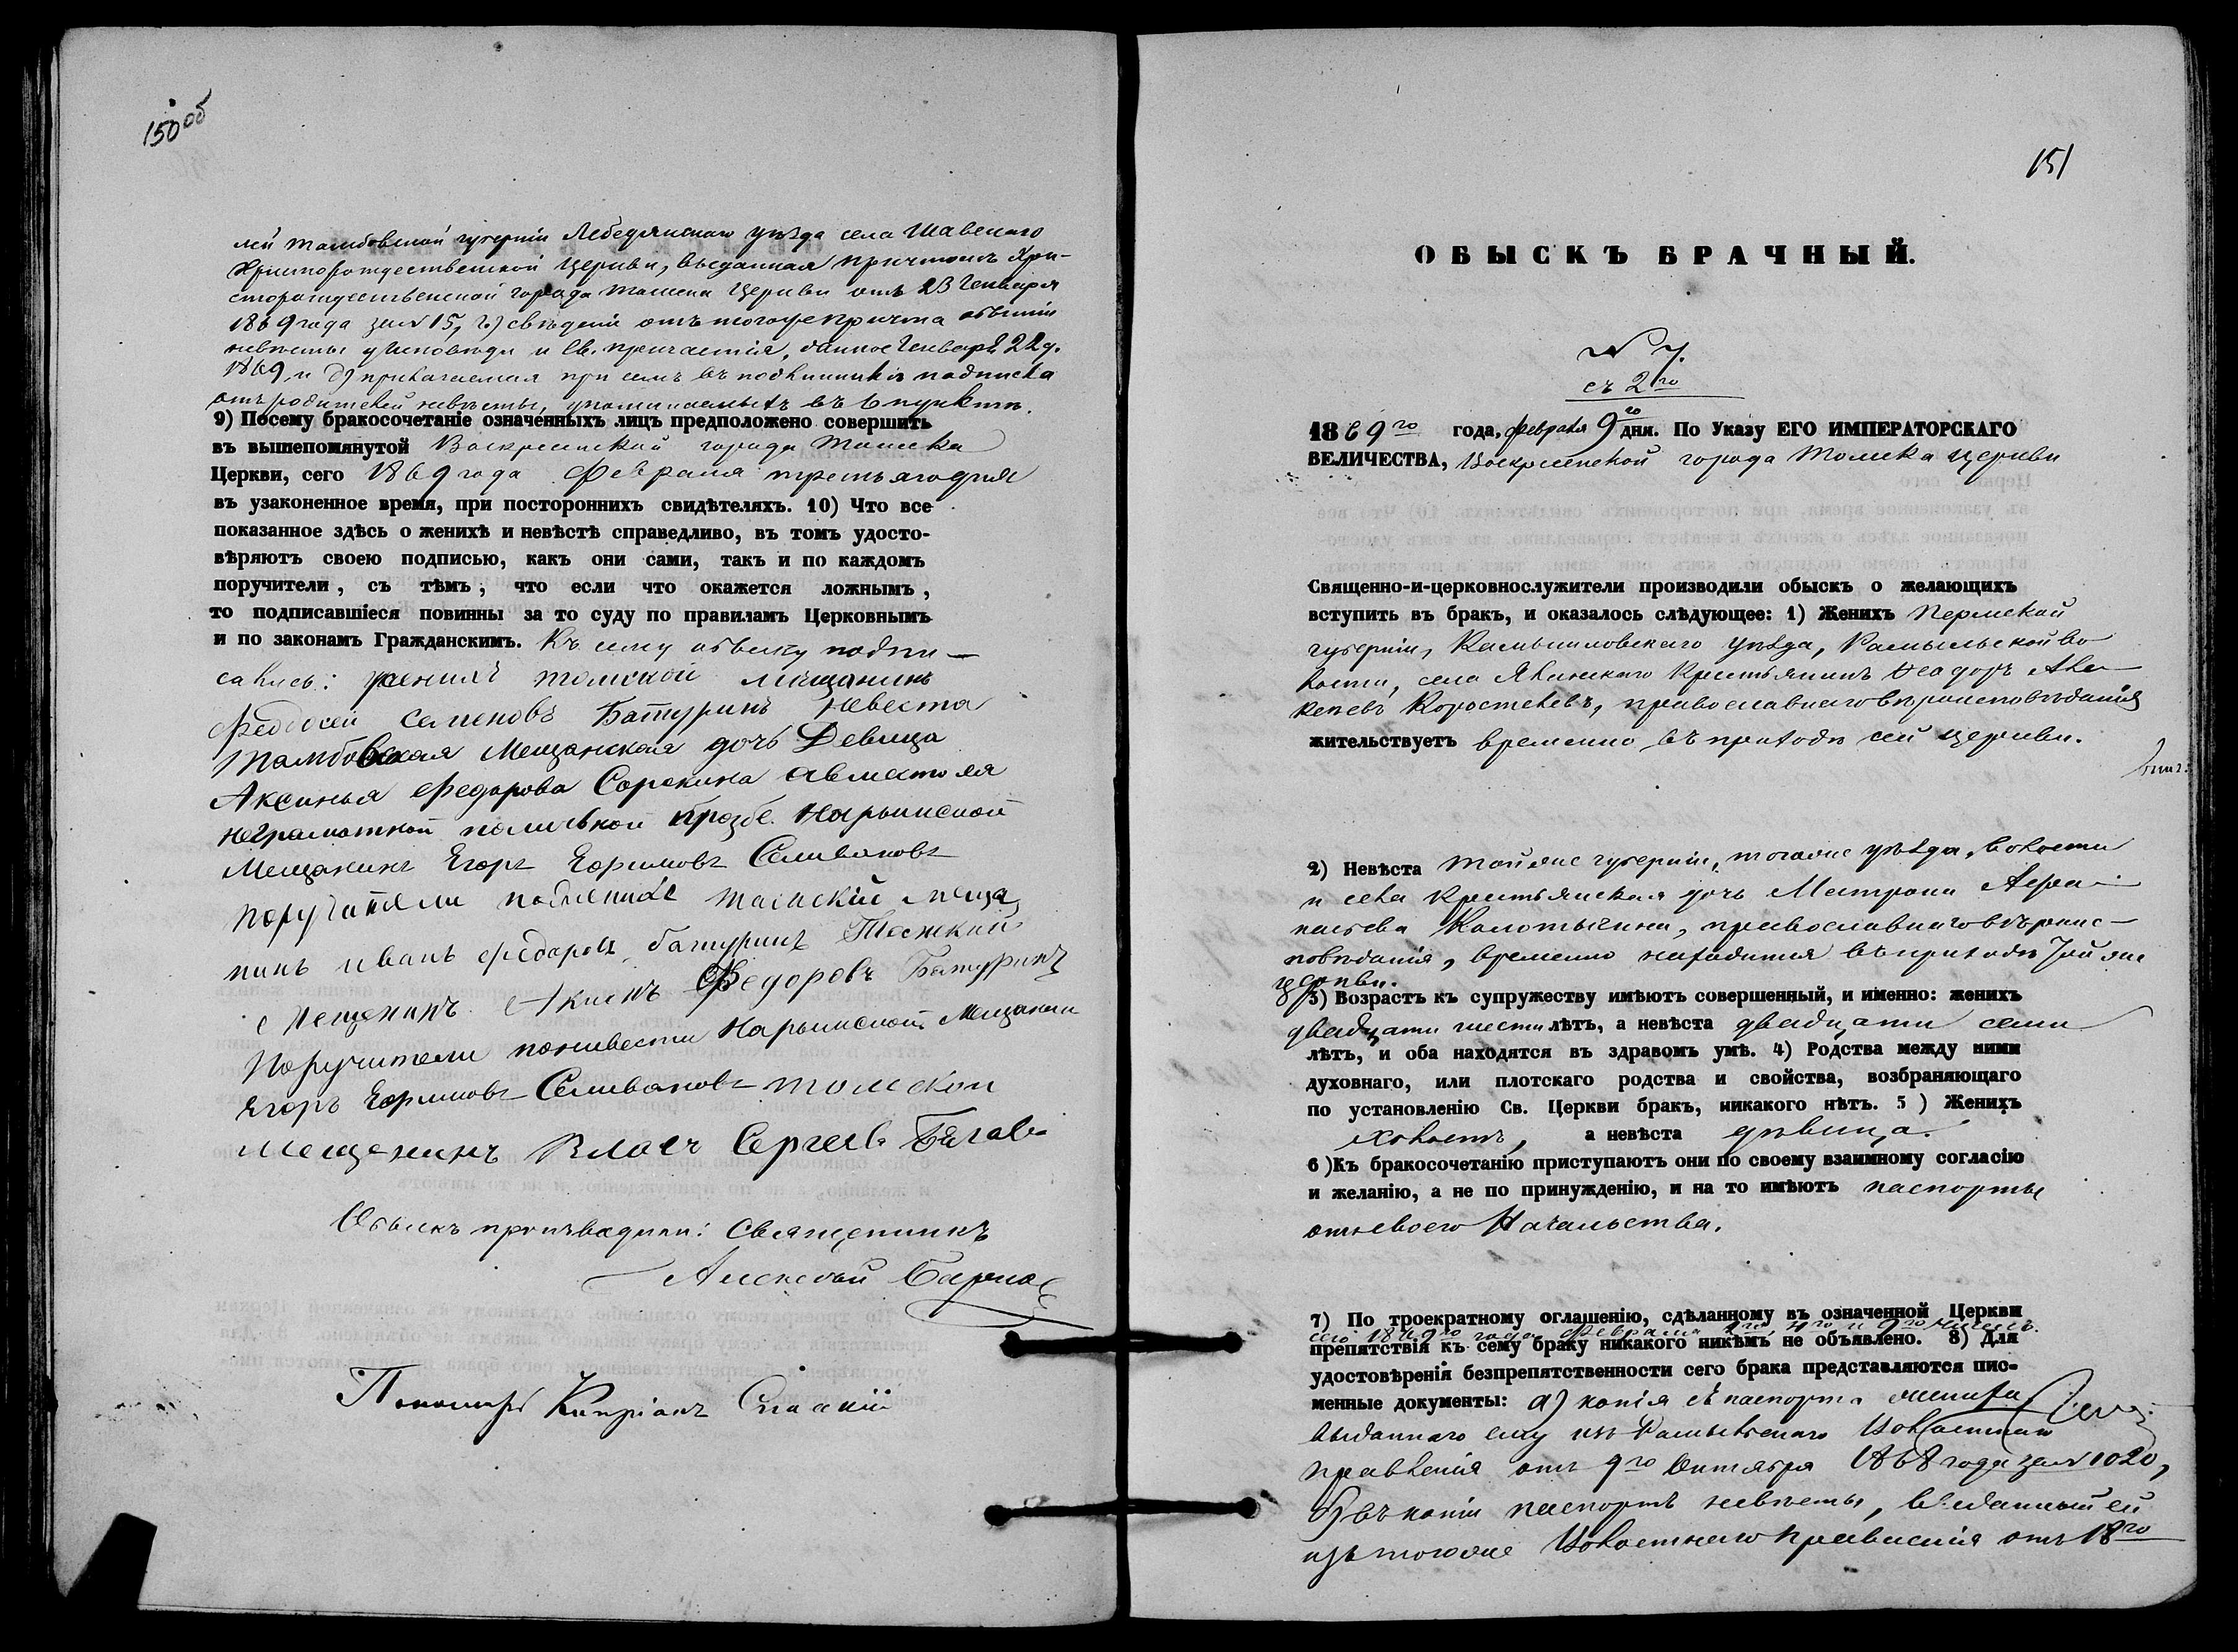 150 об
лей Тамбовской губерніи Лебедянскаго уѣзда села Шавскаго
Христорождественской Церкви, выданная причтомъ Хри-
сторождественской города Томска Церкви отъ 23 Генваря
1869 года за № 15, г.) свѣдѣніе отъ тогоже причта обытіи
невѣсты уисповѣди и Св. причастія, данное Генваря 22 д.
1869, и д) прилагаемая при семъ въ подлинникѣ подписка
отъ родителей невѣсты, упоминаемыхъ въ 6 пунктѣ.
9) Посему бракосочетаніе означенныхъ лицъ предположено совершить
въ вышепомянутой Воскресенской города Томска
Церкви, сего 1869 года Февраля третьягодня
въ узаконенное время, при постороннихъ свидѣтеляхъ. 10) Что все
показанное здѣсь о женихѣ и невѣстѣ справедливо, въ томъ удосто-
вѣряютъ своею подписью, какъ они сами, такъ и по каждомъ
поручители, съ тѣмъ, что если что окажется ложнымъ,
то подписавшіеся повинны за то суду по правиламъ Церковнымъ
и по законамъ Гражданскимъ. Къ сему обыску подпи-
сались: женихъ томской мещанинъ
Феодосей Семеновъ Батуринъ Невеста
Тамбовская Мещанская дочь Девица
Аксинья Федорова Сорокина авместо ея
неграмотной поличной прозбе Нарымской
Мещанинъ Егоръ Ефимовъ Селивановъ
поручатели поженихе томскій меща
нинъ иванъ федаровъ батуринъ Томскии
мещенинъ Акимъ Федоровъ Батуринъ
Поручители поневести Нарымской Мещанин
Егоръ Ефимовъ Селивановъ томской
мещенинъ Власъ Сергеевъ
Обыскъ производили: Священникъ
Алексѣй
Пономарь Кипріанъ Спаскій
151
ОБЫСКЪ БРАЧНЫЙ.
№ 7.
съ 2го
1869го года, февраля 9го дня. По Указу ЕГО ИМПЕРАТОРСКАГО
ВЕЛИЧЕСТВА, Воскресенской города Томска церкви
Священно-и-церковнослужители производили обыскъ о желающихъ
вступить въ бракъ, и оказалось слѣдующее: 1) Женихъ Пермской
губерніи, Камышловскаго уѣзда, во
лости, села крестьянинъ Ѳеодоръ
Коростелевъ, православнаго вѣроисповѣданія
жительствуетъ временно въ приходѣ сей церкви.
2) Невѣста Тойже губерніи, тогоже уѣзда, волости
и села крестьянская дочь Матрона Афа-
насьева православнаго вѣроис-
повѣданія, временно находится въ приходѣ сейже
церкви.
3) Возрастъ къ супружеству имѣютъ совершенный, и именно: женихъ
двадцати шести лѣтъ, а невѣста двадцати семи
лѣтъ, и оба находятся въ здравомъ умѣ. 4) Родства между ними
духовнаго, или плотскаго родства и свойства, возбраняющаго
по установленію Св. Церкви бракъ, никакого нѣтъ. 5) Женихъ
холостъ, а невѣста дѣвица.
6) Къ бракосочетанію приступаютъ они по своему взаимному согласію
и желанію, а не по принужденію, и на то имѣютъ паспорты
отъ своего Начальства.
7) По троекратному оглашенію, сдѣланному въ означенной Церкви
сего 1869го года Февраля 2го, и 9го чиселъ.
препятствія къ сему браку никакого никѣмъ не объявлено. 8) Для
удостовѣренія безпрепятственности сего брака представляются пис-
менные документы: а) копія съ паспорта жениха
выданнаго ему изъ Волостнаго
Правленія отъ 9го Октября 1868 года за № 1020,
б) въ копіи паспортъ невѣсты, выданный ей
изъ тогоже Волостнаго правленія отъ 18го